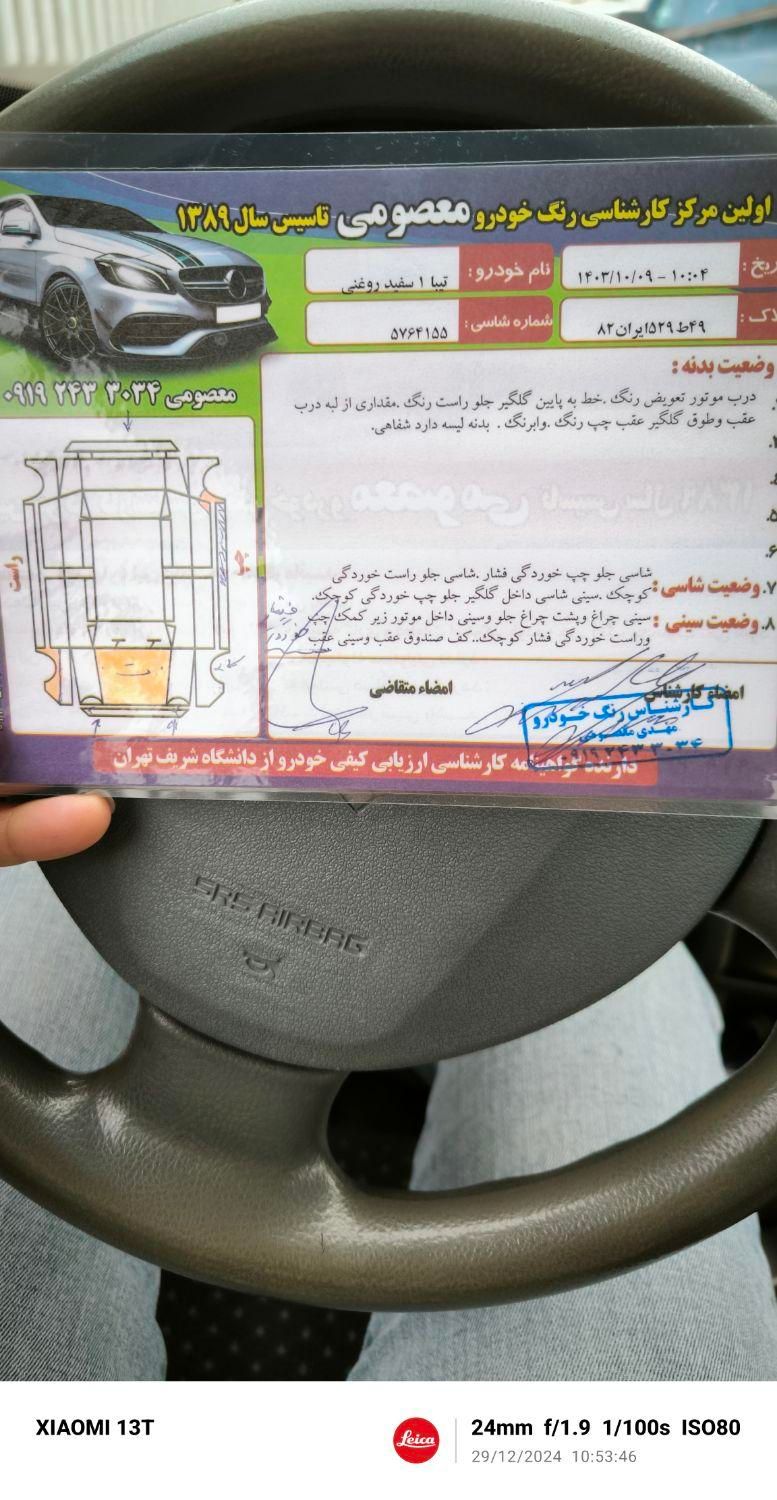 اولین مرکز کارشناسی رنگ خودرو معصومی تاسیس سال ۱۳۸۹
ریخ: ۱۴۰۳/۱۰/۰۹ - ۱۰:۰۴
نام خودرو: تیبا ۱ سفید روغنی
لاک: ۴۹ط۵۲۹ایران۸۲
شماره شاسی: ۵۷۶۴۱۵۵
معصومی ۰۹۱۹ ۲۴۳ ۳۰۳۴
وضعیت بدنه:
درب موتور تعویض رنگ .خط به پایین گلگیر جلو راست رنگ .مقداری از لبه درب
عقب وطوق گلگیر عقب چپ رنگ .وابرنگ . بدنه لیسه دارد شفاهی.
۵.
۶.
راست
چپ
۷.وضعیت شاسی:
شاسی جلو چپ خوردگی فشار .شاسی جلو راست خوردگی
کوچک .سینی شاسی داخل گلگیر جلو چپ خوردگی کوچک.
۸.وضعیت سینی:
سینی چراغ وپشت چراغ جلو وسینی داخل موتور زیر کمک چپ
وراست خوردگی فشار کوچک..کف صندوق عقب وسینی عقب
فشار
امضاء کارشناس
امضاء متقاضی
کارشناس رنگ خودرو
مهدی معصومی
۰۹۱۹ ۲۴۳ ۳۰۳۴
دارنده گواهینامه کارشناسی ارزیابی کیفی خودرو از دانشگاه شریف تهران
SRS AIRBAG
XIAOMI 13T
Leica
24mm f/1.9 1/100s ISO80
29/12/2024 10:53:46